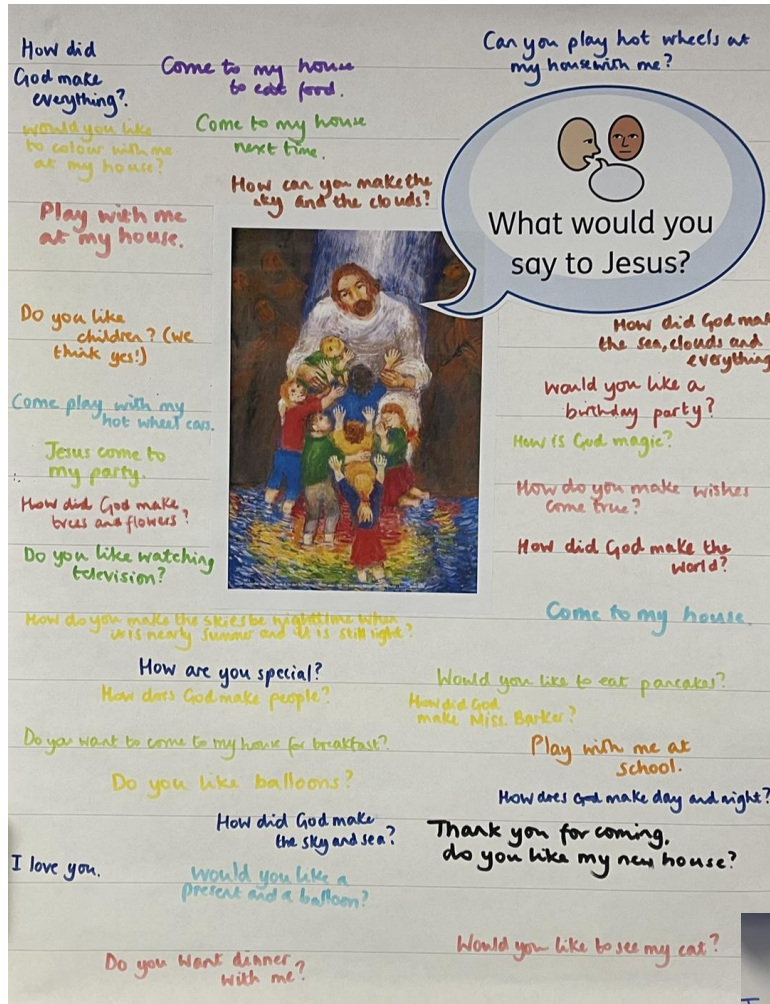 How did
God make
everything?
Come to my house
to eat food.
Can you play hot wheels at
my house with me?
would you like
to colour with me
at my house?
Come to my house
next time.
How can you make the
sky and the clouds?
What would you
say to Jesus?
Play with me
at my house.
Do you like
children? (we
think yes!)
How did God mak
the sea, clouds and
everything
Come play with my
hot wheel cars.
would you like a
birthday party?
How is God magic?
Jesus come to
my party.
How do you make wishes
come true?
How did God make
trees and flowers?
How did God make the
world?
Do you like watching
television?
Come to my house.
How do you make the skies be nighttime when
it is nearly summer and it is still light?
How are you special?
How does God make people?
Would you like to eat pancakes?
How did God
make Miss Barker?
Do you want to come to my house for breakfast?
Play with me at
school.
Do you like balloons?
How does God make day and night?
How did God make
the sky and sea?
Thank you for coming,
do you like my new house?
I love you.
would you like a
present and a balloon?
Would you like to see my cat?
Do you want dinner
with me?